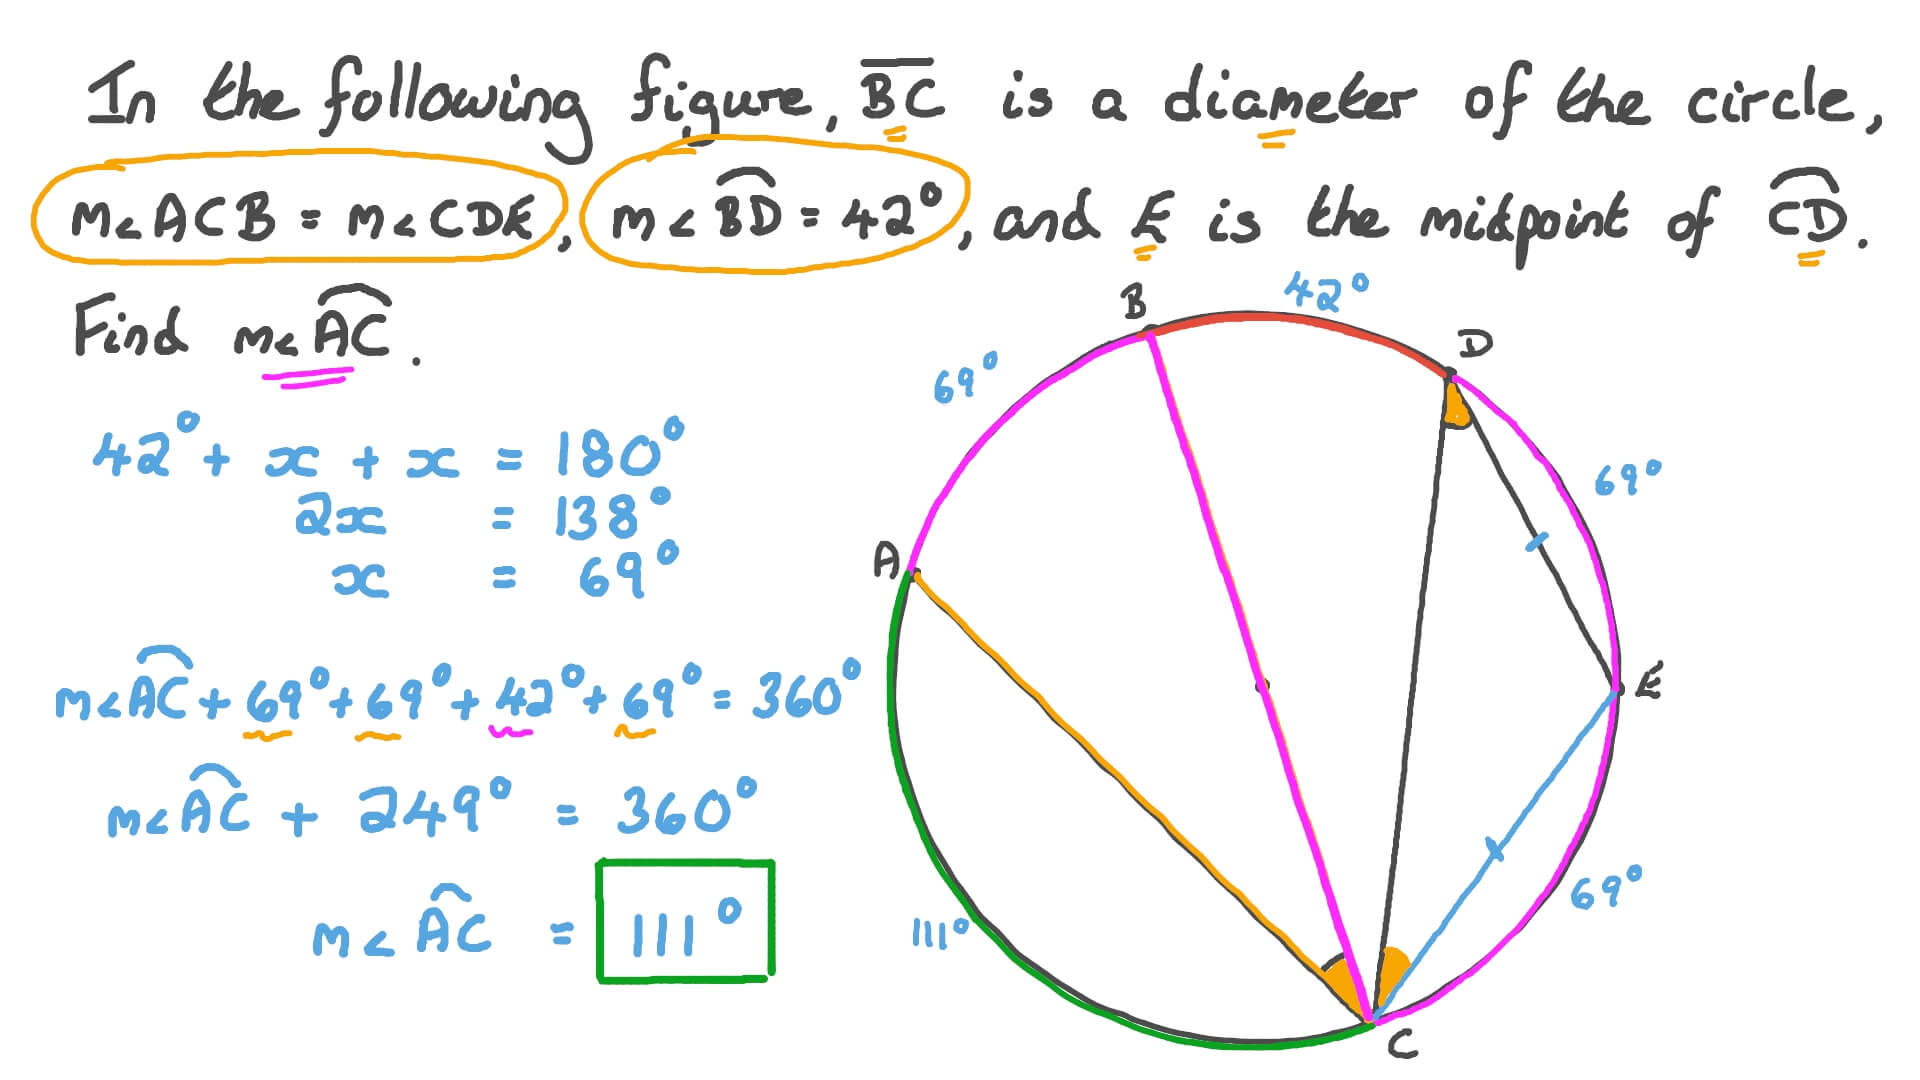 In the following figure, B̅C̅ is a diameter of the circle,
m∠ACB = m∠CDE, m∠B͡D = 42°, and E is the midpoint of C͡D.
Find m∠A͡C.
42° + x + x = 180°
2x = 138°
x = 69°
m∠A͡C + 69° + 69° + 42° + 69° = 360°
m∠A͡C + 249° = 360°
m∠A͡C = 111°
B
42°
D
69°
69°
A
E
69°
111°
C